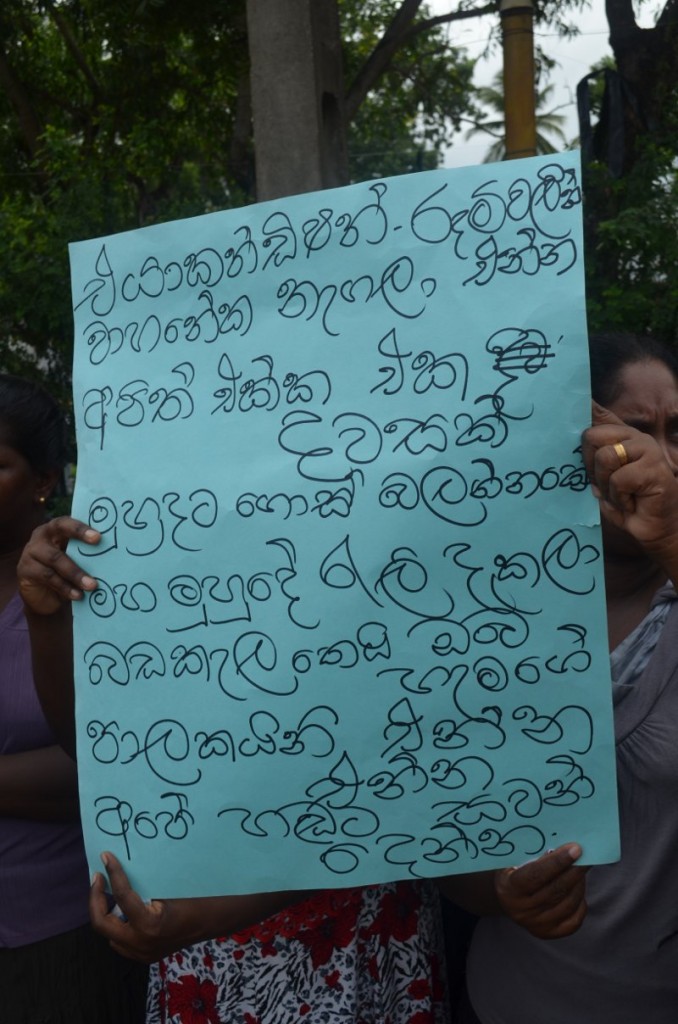 එයාකන්ඩිෂන්. රූම්වලින්
වාහනේක නැගලා. එන්න
අපිත් එක්ක එක
දවසක්
මුහුදට ගොස් බලගන්නකෝ
මහ මුහුදේ රැලි දැකලා
බඩකැලතෙයි ඔබේ හැමගේ
පාලකයිනි එන්න එන්න
අපේ හඬට සවන්
දෙන්න.